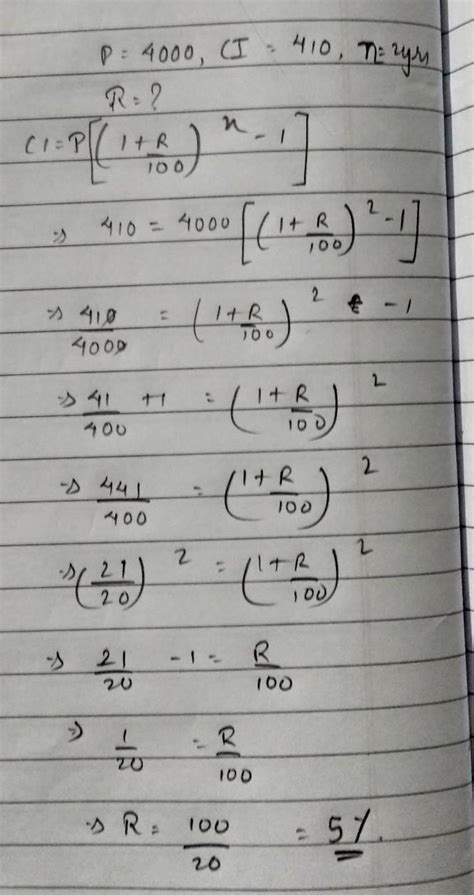 P = 4000, CI = 410, n = 2yrs
R = ?
CI = P[(1+R/100)^n - 1]
⇒ 410 = 4000 [(1+R/100)^2 - 1]
⇒ 410/4000 = (1+R/100)^2 - 1
⇒ 41/400 + 1 = (1+R/100)^2
⇒ 441/400 = (1+R/100)^2
⇒ (21/20)^2 = (1+R/100)^2
⇒ 21/20 - 1 = R/100
⇒ 1/20 = R/100
⇒ R = 100/20 = 5%.